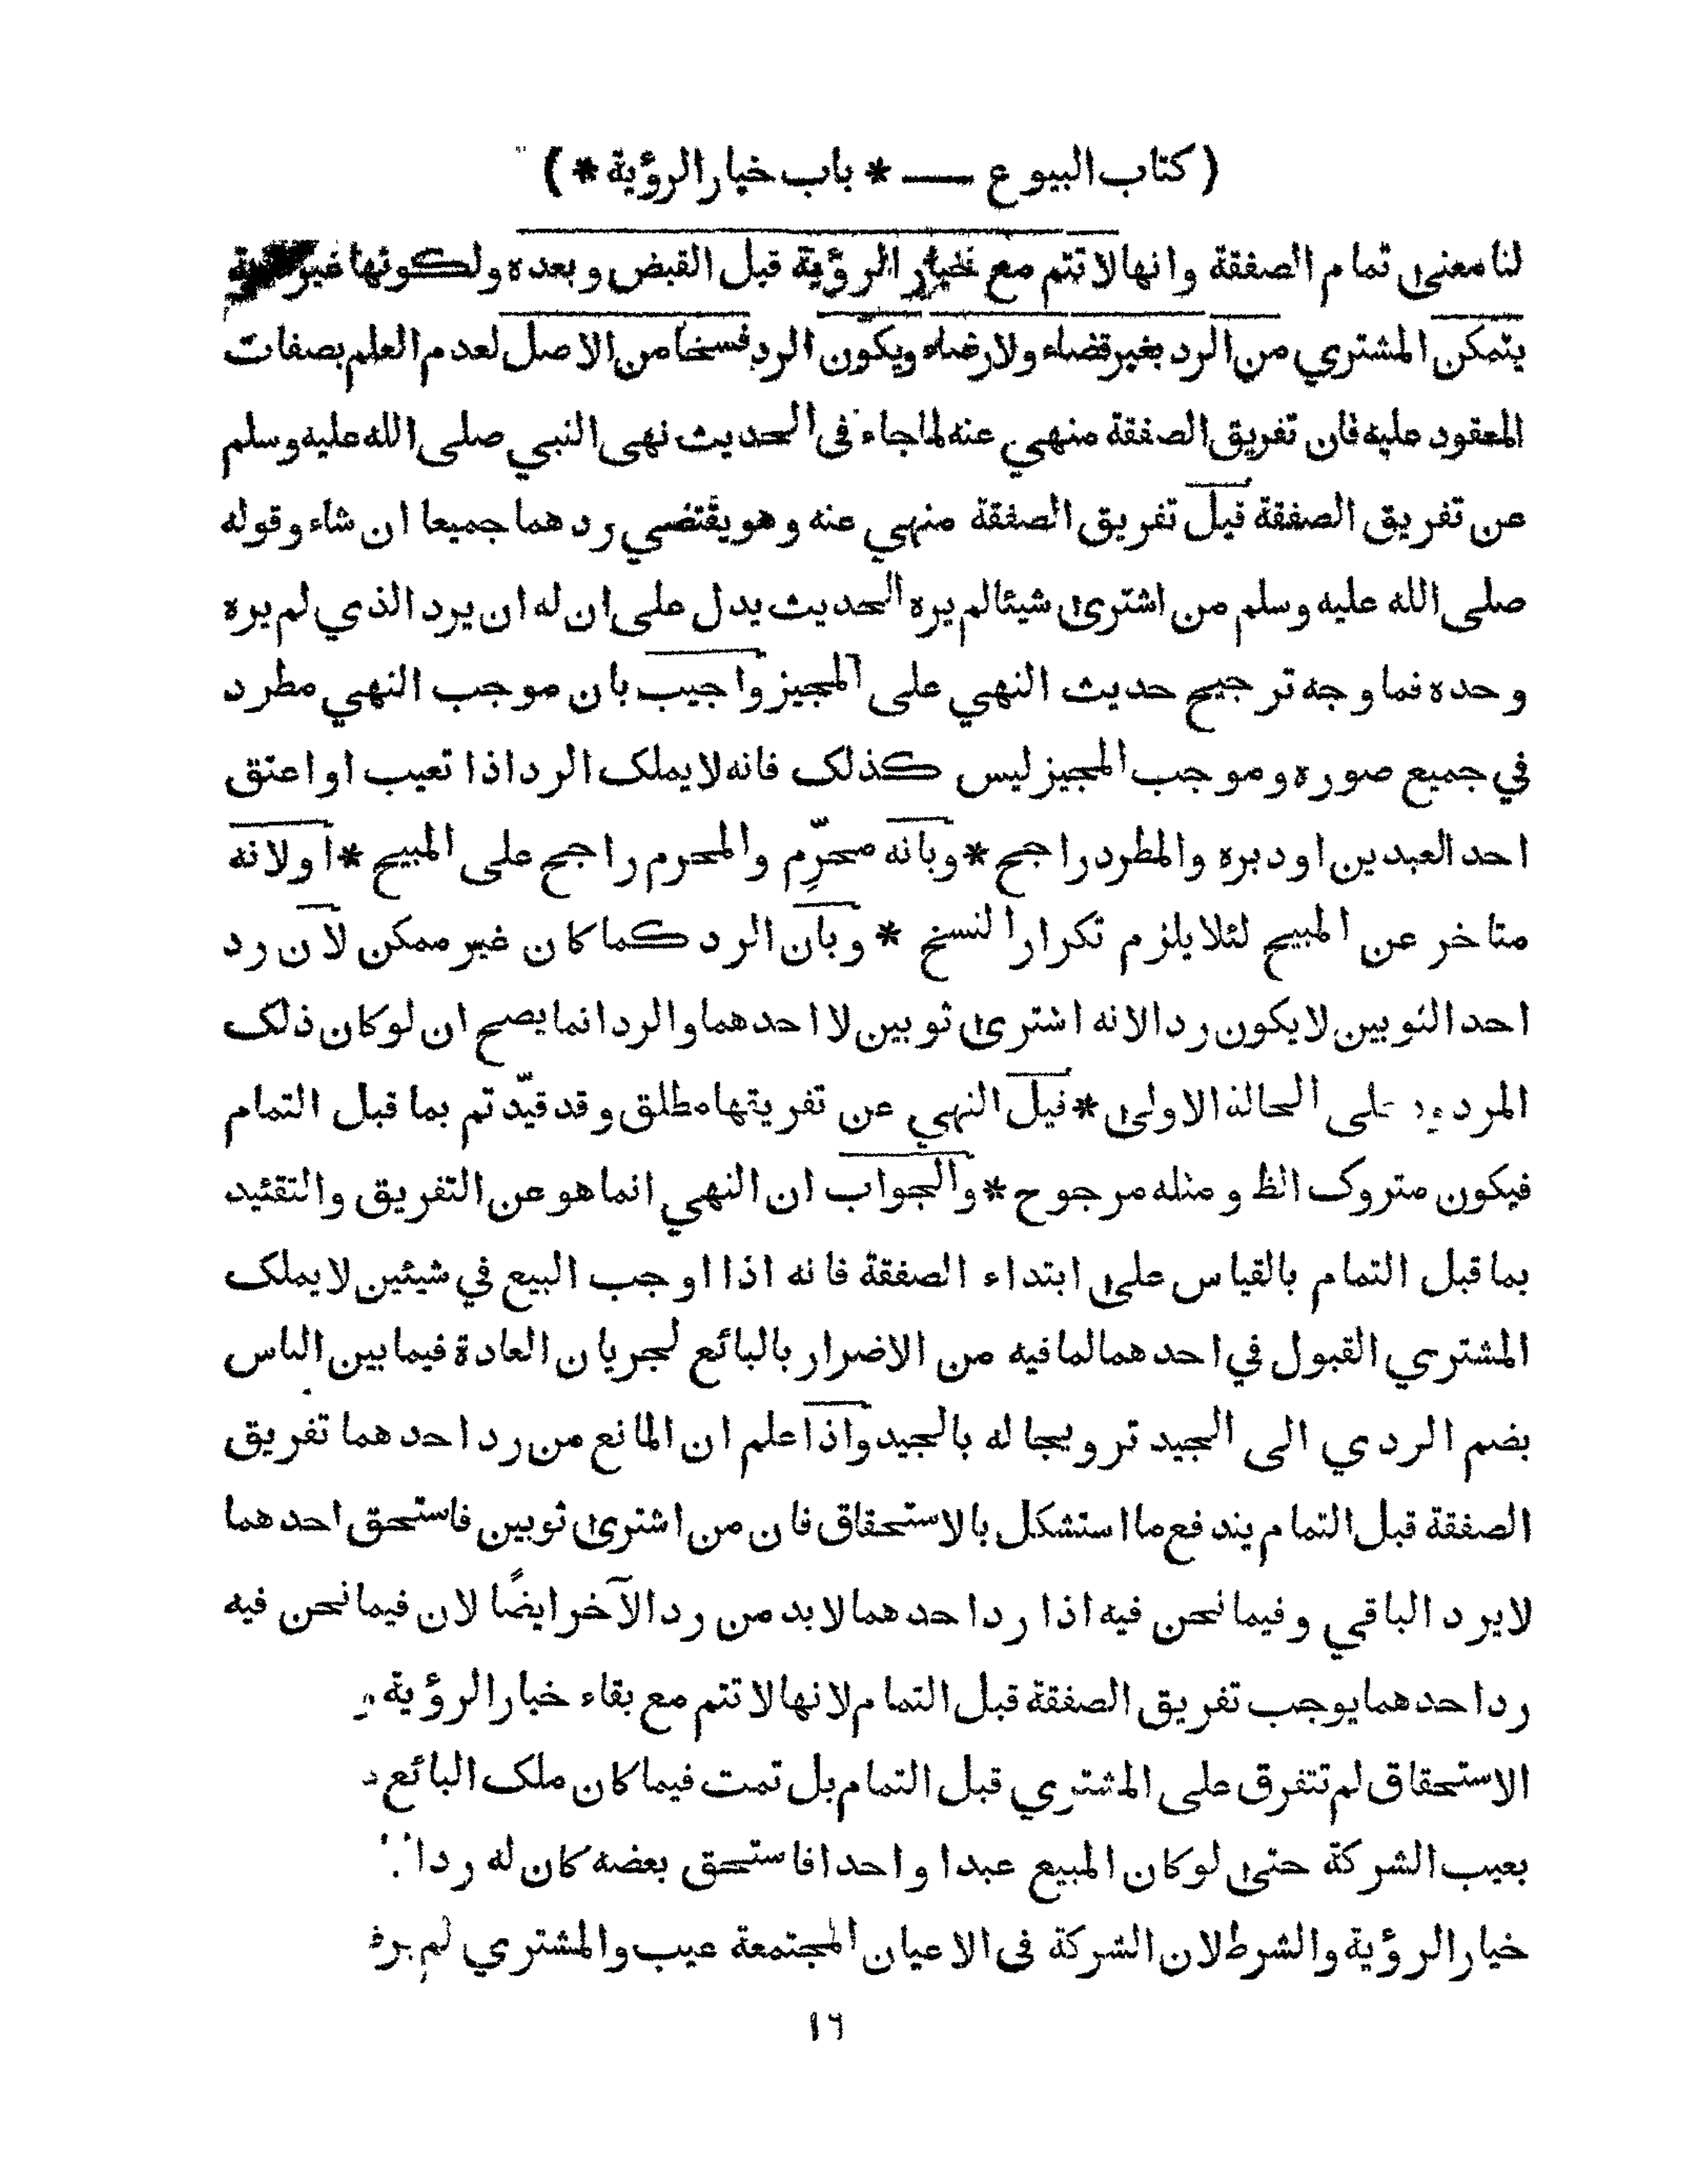 ( كتاب البيوع — * باب خيار الرؤية * )
لنا معنى تمام الصفقة وانها لا تتم مع خيار الرؤية قبل القبض وبعده ولكونها غير
يتمكن المشتري من الرد بغير قضاء ولا رضاء ويكون الرد فسخا من الاصل لعدم العلم بصفات
المعقود عليه فان تفريق الصفقة منهي عنه لما جاء في الحديث نهى النبي صلى الله عليه وسلم
عن تفريق الصفقة قيل تفريق الصفقة منهي عنه وهو يقتضي رد هما جميعا ان شاء وقوله
صلى الله عليه وسلم من اشترى شيئا لم يره الحديث يدل على ان له ان يرد الذي لم يره
وحده فما وجه ترجيح حديث النهي على المجيز واجيب بان موجب النهي مطرد
في جميع صوره وموجب المجيز ليس كذلك فانه لا يملك الرد اذا تعيب او اعتق
احد العبدين او دبره والمطرد راجح * وبانه محرّم والمحرم راجح على المبيح * اولانه
متاخر عن المبيح لئلا يلزم تكرار النسخ * وبان الرد كما كان غير ممكن لان رد
احد الثوبين لا يكون ردا لانه اشترى ثوبين لا احدهما والرد انما يصح ان لو كان ذلك
المردود على الحالة الاولى * قيل النهي عن تفريقها مطلق وقد قيّد تم بما قبل التمام
فيكون متروك الظ ومثله مرجوح * والجواب ان النهي انما هو عن التفريق والتقئيد
بما قبل التمام بالقياس على ابتداء الصفقة فانه اذا اوجب البيع في شيئين لا يملك
المشتري القبول في احدهما لما فيه من الاضرار بالبائع لجريان العادة فيما بين الناس
بضم الردي الى الجيد ترويجا له بالجيد واذا علم ان المانع من رد احدهما تفريق
الصفقة قبل التمام يندفع ما استشكل بالاستحقاق فان من اشترى ثوبين فاستحق احدهما
لا يرد الباقي وفيما نحن فيه اذا رد احدهما لابد من رد الآخر ايضًا لان فيما نحن فيه
رد احدهما يوجب تفريق الصفقة قبل التمام لانها لا تتم مع بقاء خيار الرؤية
الاستحقاق لم تتفرق على المشتري قبل التمام بل تمت فيما كان ملك البائع
بعيب الشركة حتى لو كان المبيع عبدا واحدا فاستحق بعضه كان له ردا
خيار الرؤية والشرط لان الشركة في الاعيان المجتمعة عيب والمشتري لم يره
١٦